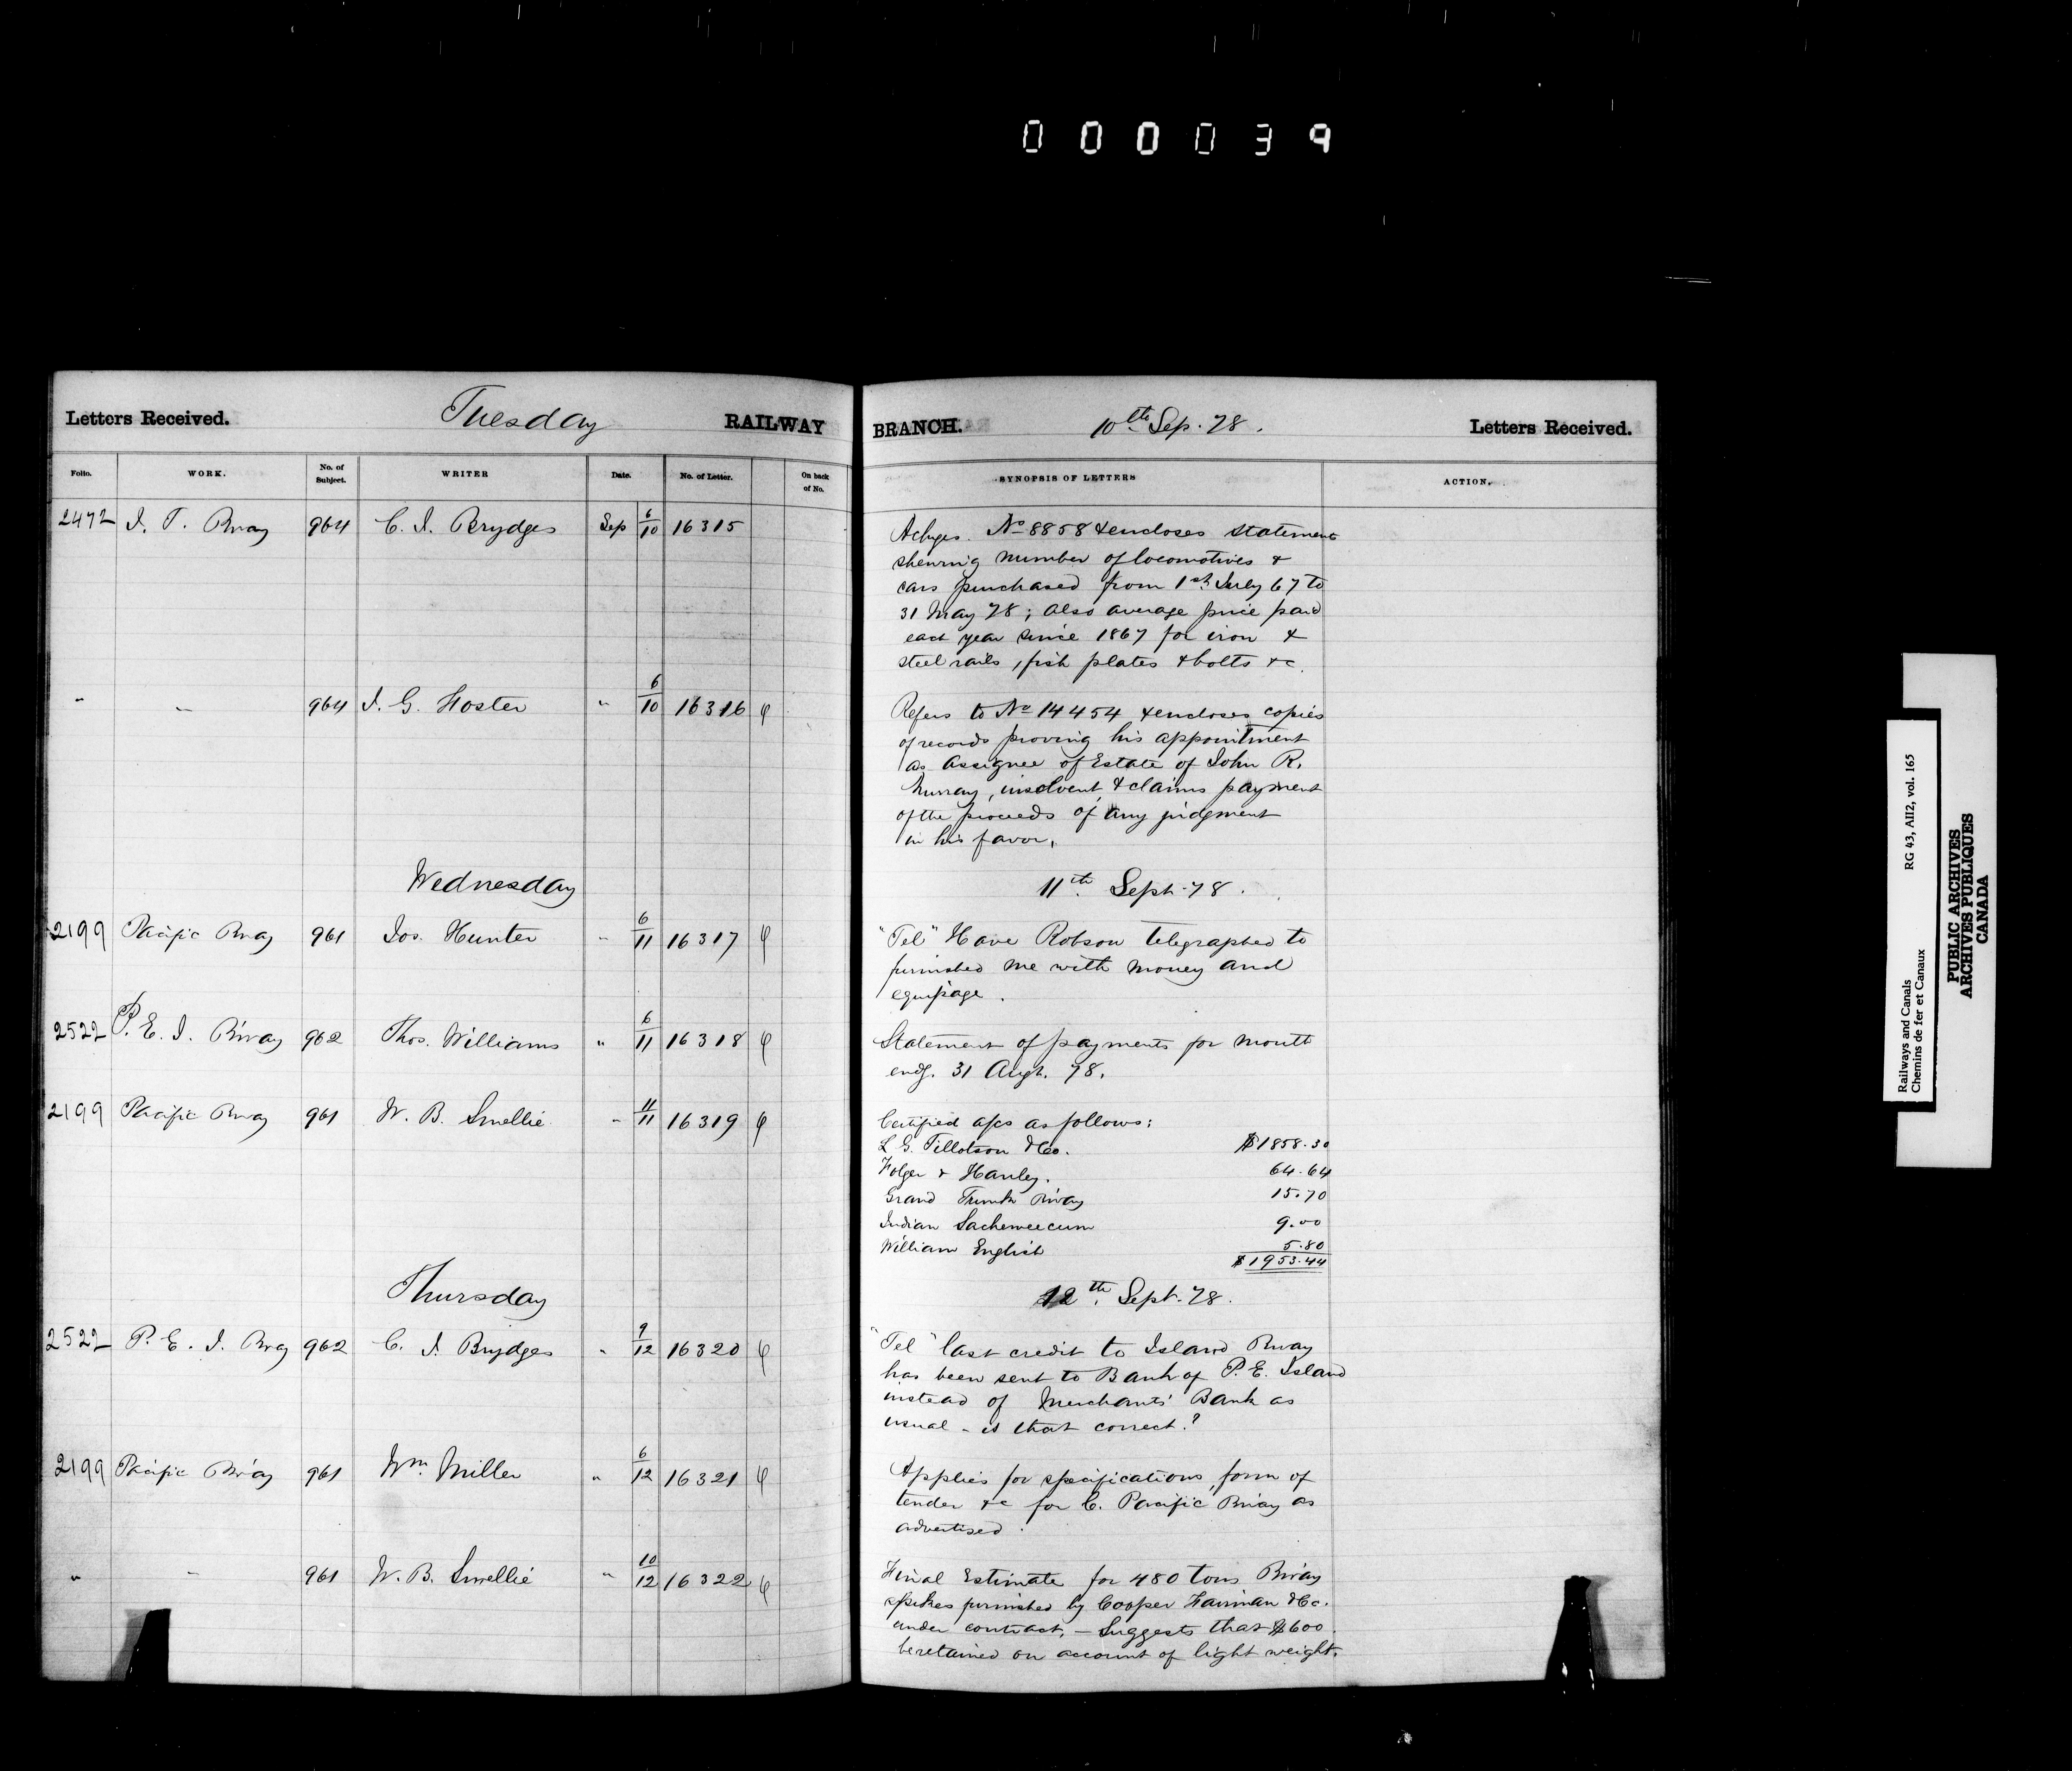 000039
Letters Received. Tuesday RAILWAY BRANCH. 10th Sep. 78. Letters Received.
Folio. WORK. No. of Subject. WRITER Date. No. of Letter. On back of No. SYNOPSIS OF LETTERS ACTION.
2472 I. T. Rway 964 C. J. Brydges Sep 6/10 16315
Ackges. No 8858 & encloses statement
shewing number of locomotives &
cars purchased from 1st July 67 to
31 May 78; also average price paid
each year since 1867 for iron &
steel rails, fish plates & bolts &c.
" " 964 I. G. Foster " 6/10 16316 φ
Refers to No 14454 & encloses copies
of records proving his appointment
as Assignee of Estate of John R.
Murray, insolvent, & claims payment
of the proceeds of any judgment
in his favor.
Wednesday 11th Sept. 78.
2199 Pacific Rway 961 Jos. Hunter " 6/11 16317 φ
"Tel" Have Robson telegraphed to
furnished me with money and
equipage.
2522 P. E. I. Rway 962 Thos. Williams " 6/11 16318 φ
Statement of payments for month
endg. 31 Augt. 78.
2199 Pacific Rway 961 W. B. Smellie " 11/11 16319 φ
Certified a/cs as follows:
L. G. Tillotson & Co. $1858.30
Folger & Hanley. 64.64
Grand Trunk Rway 15.70
Indian 9.00
William English 5.80
$1953.44
Thursday 12th Sept. 78.
2522 P. E. I. Rway 962 C. J. Brydges " 9/12 16320 φ
"Tel" last credit to Island Rway
has been sent to Bank of P. E. Island
instead of Merchants' Bank as
usual - is that correct?
2199 Pacific Rway 961 Wm. Miller " 6/12 16321 φ
Applies for specifications, form of
tender &c for C. Pacific Rway as
advertised.
" " 961 W. B. Smellie " 10/12 16322 φ
Final Estimate for 480 tons Rway
spikes furnished by Cooper Fairman & Co.
under contract, - Suggests that $600
be retained on account of light weight.
Railways and Canals RG 43, AII2, vol. 165
Chemins de fer et Canaux
PUBLIC ARCHIVES
ARCHIVES PUBLIQUES
CANADA